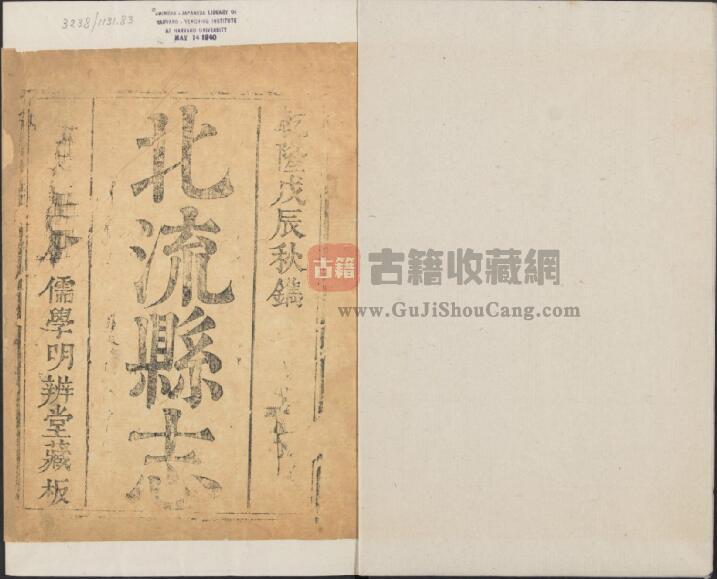 3238/1131.83
CHINESE-JAPANESE LIBRARY OF
HARVARD-YENCHING INSTITUTE
AT HARVARD UNIVERSITY
MAY 14 1940
乾隆戊辰秋鐫
北流縣志
儒學明辨堂藏板
古籍
古籍收藏網
www.GuJiShouCang.com